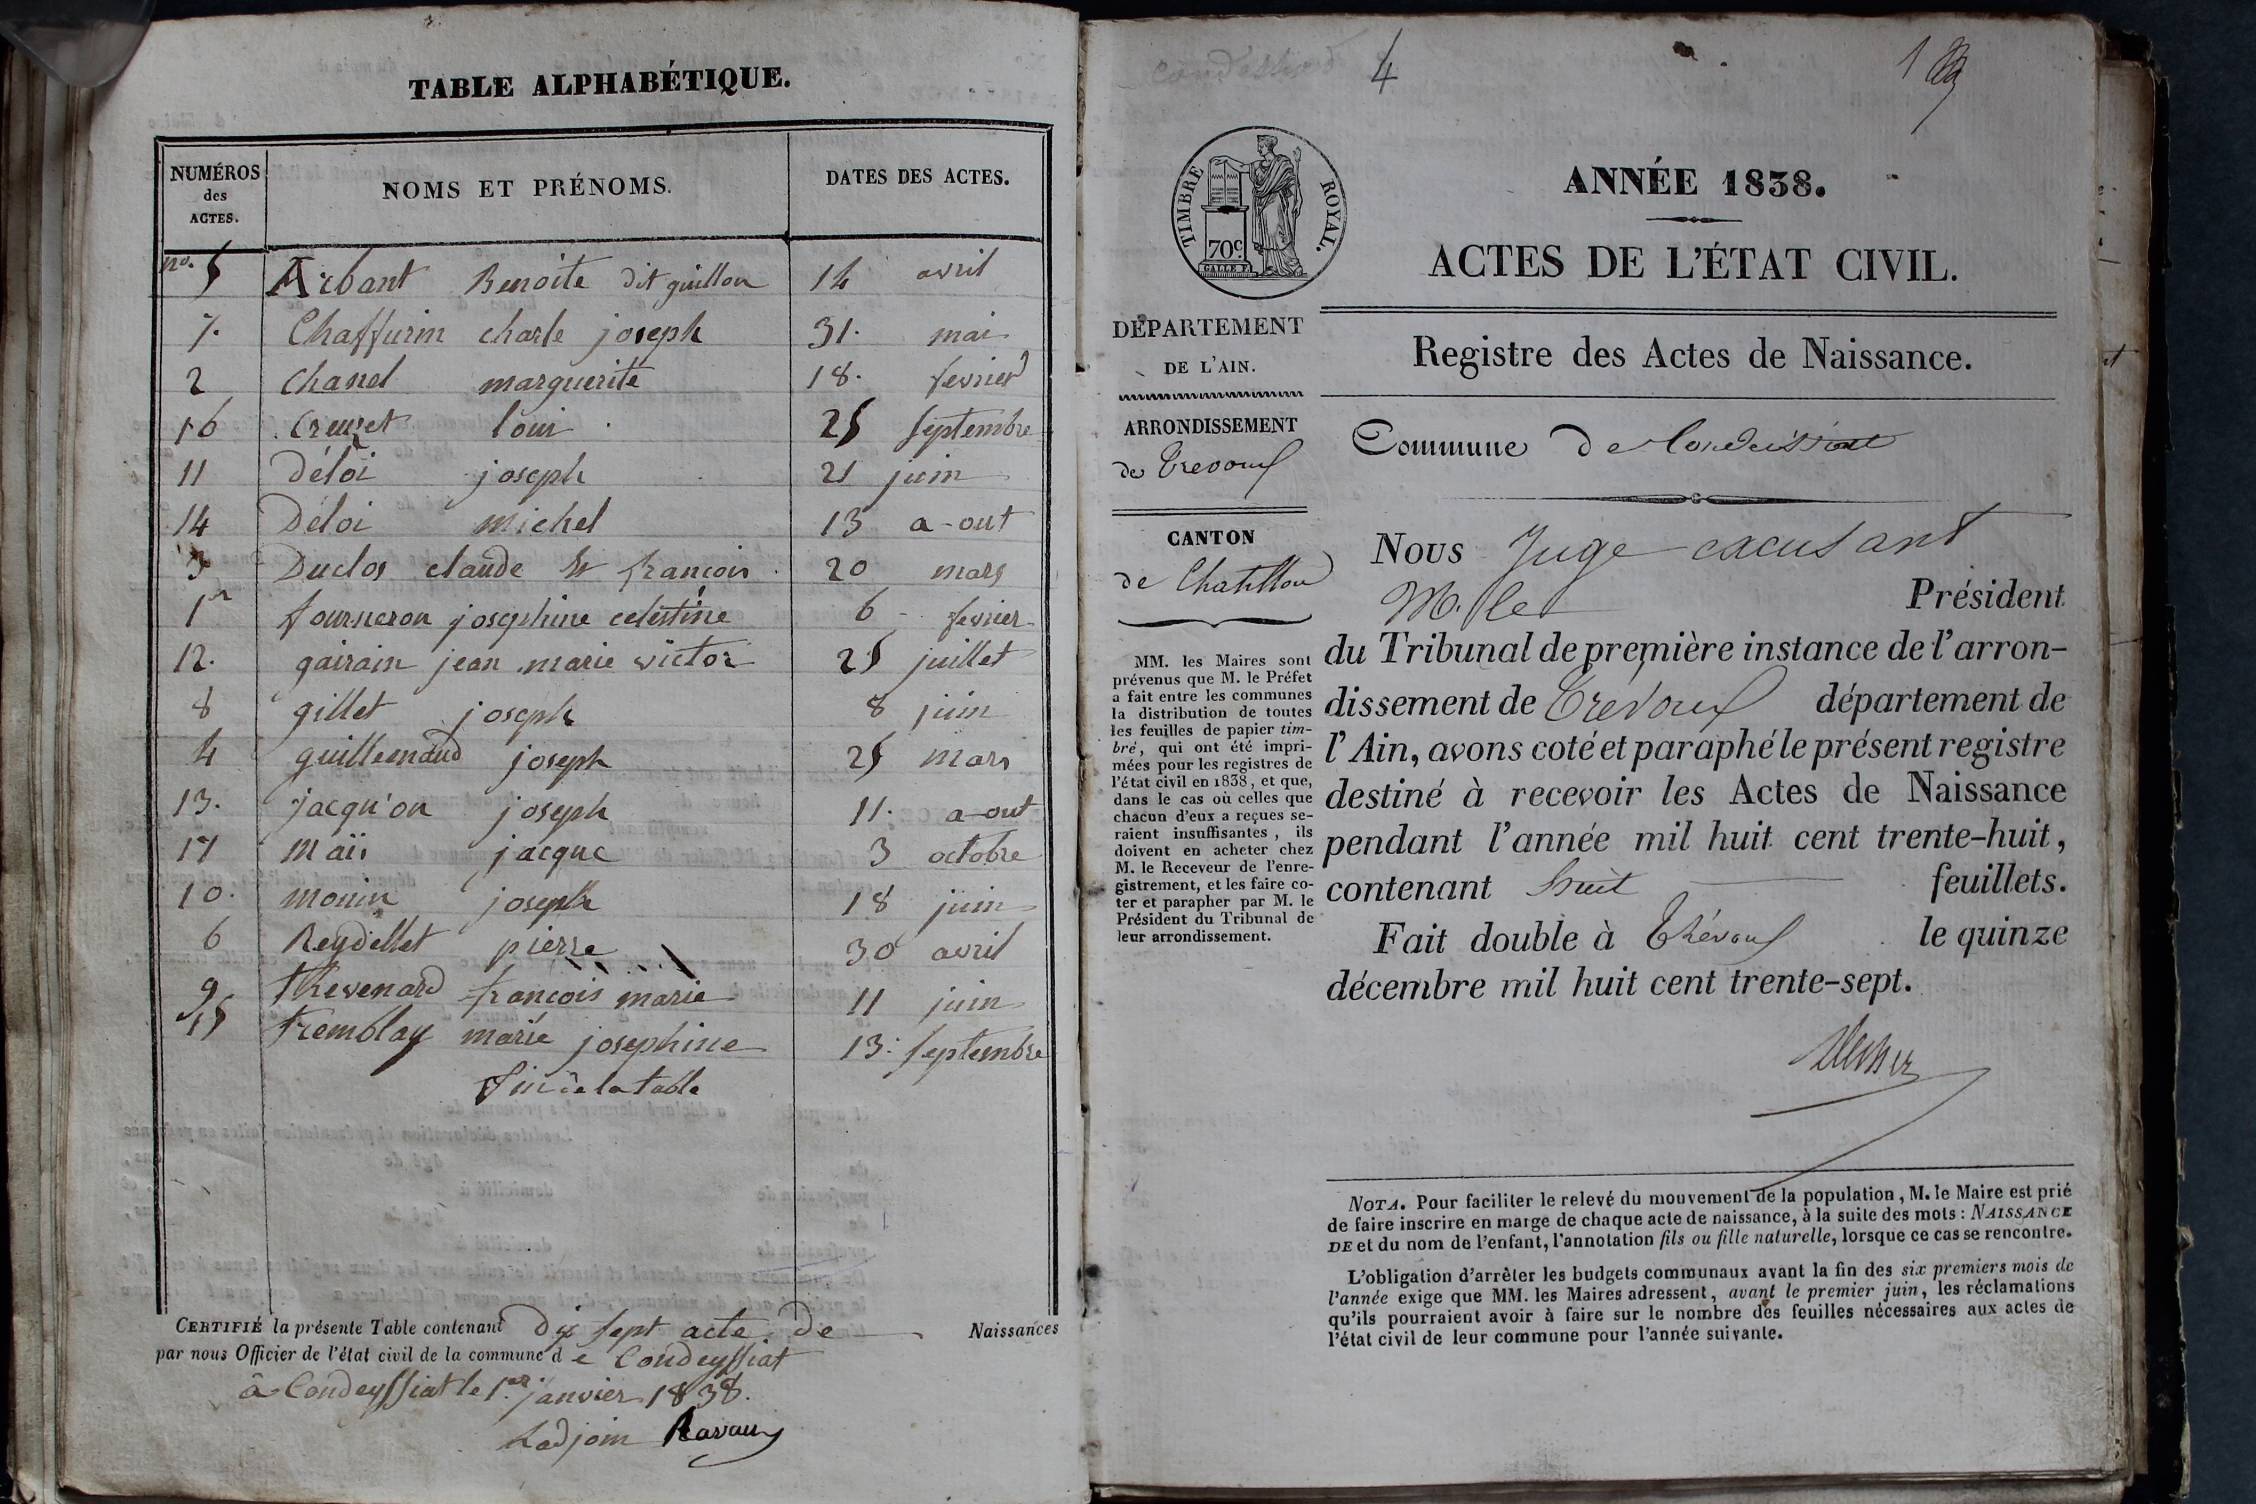 TABLE ALPHABÉTIQUE.
NUMÉROS des ACTES. NOMS ET PRÉNOMS. DATES DES ACTES.
no. 5 Arbant Benoite dit guillon 14 avril
7. Chaffurin charle joseph 31. mai
2 Chanel marguerite 18. fevrier
16 Creuzet louis 25 septembre
11 Déloi joseph 21 juin
14 Déloi michel 13 a-out
3 Duclos claude françois 20 mars
1er fourneron josephine celestine 6 fevrier
12. gairain jean marie victor 25 juillet
8 gillet joseph 8 juin
4 guillemaud joseph 25 mars
13. jacqu'on joseph 11. a-out
17 maïs jacque 3 octobre
10. monin joseph 18 juin
6 Reydellet pierre 30 avril
9 thevenard françois marie 11 juin
15 tremblay marie josephine 13. septembre
fin de la table
CERTIFIÉ la présente Table contenant dix sept acte de Naissances
par nous Officier de l'état civil de la commune de Condeyssiat
à Condeyssiat le 1er janvier 1838.
Ladjoin Ravaux
4
1
TIMBRE ROYAL.
70c
GALLE F.
ANNÉE 1838.
ACTES DE L'ÉTAT CIVIL.
Registre des Actes de Naissance.
DÉPARTEMENT
DE L'AIN.
ARRONDISSEMENT
de Trevoux
CANTON
de Chatillon
MM. les Maires sont
prévenus que M. le Préfet
a fait entre les communes
la distribution de toutes
les feuilles de papier tim-
bré, qui ont été impri-
mées pour les registres de
l'état civil en 1838, et que,
dans le cas où celles que
chacun d'eux a reçues se-
raient insuffisantes, ils
doivent en acheter chez
M. le Receveur de l'enre-
gistrement, et les faire co-
ter et parapher par M. le
Président du Tribunal de
leur arrondissement.
Commune de Condeissiat
Nous Juge excusant
M. le Président
du Tribunal de première instance de l'arron-
dissement de Trévoux département de
l'Ain, avons coté et paraphé le présent registre
destiné à recevoir les Actes de Naissance
pendant l'année mil huit cent trente-huit,
contenant huit feuillets.
Fait double à Trévoux le quinze
décembre mil huit cent trente-sept.
NOTA. Pour faciliter le relevé du mouvement de la population, M. le Maire est prié
de faire inscrire en marge de chaque acte de naissance, à la suite des mots : NAISSANCE
DE et du nom de l'enfant, l'annotation fils ou fille naturelle, lorsque ce cas se rencontre.
L'obligation d'arrêter les budgets communaux avant la fin des six premiers mois de
l'année exige que MM. les Maires adressent, avant le premier juin, les réclamations
qu'ils pourraient avoir à faire sur le nombre des feuilles nécessaires aux actes de
l'état civil de leur commune pour l'année suivante.